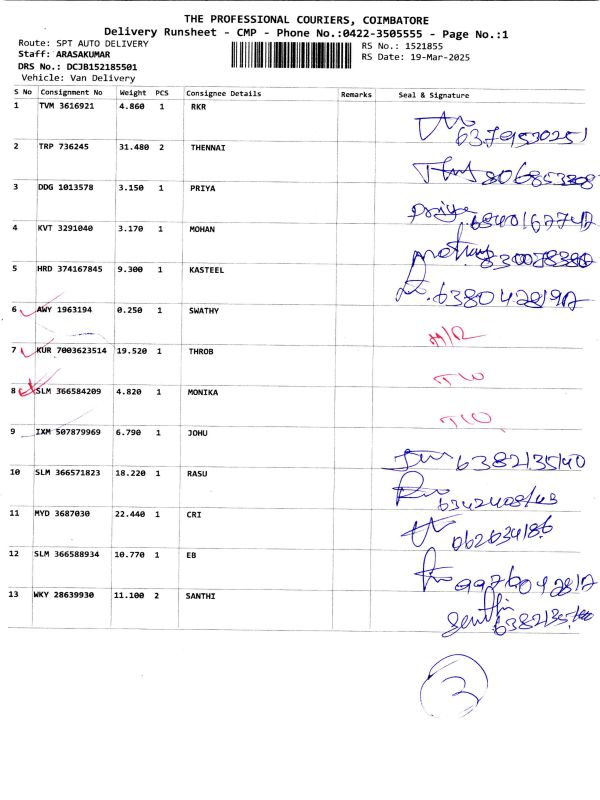 THE PROFESSIONAL COURIERS, COIMBATORE
Delivery Runsheet - CMP - Phone No.:0422-3505555 - Page No.:1
Route: SPT AUTO DELIVERY
Staff: ARASAKUMAR
DRS No.: DCJB152185501
Vehicle: Van Delivery
RS No.: 1521855
RS Date: 19-Mar-2025
S No Consignment No Weight PCS Consignee Details Remarks Seal & Signature
1 TVM 3616921 4.860 1 RKR
6379530251
2 TRP 736245 31.480 2 THENNAI
3 DDG 1013578 3.150 1 PRIYA
priya
4 KVT 3291040 3.170 1 MOHAN
5 HRD 374167845 9.300 1 KASTEEL
6 AWY 1963194 0.250 1 SWATHY
7 KUR 7003623514 19.520 1 THROB
8 SLM 366584209 4.820 1 MONIKA
9 IXM 507879969 6.790 1 JOHU
6382135140
10 SLM 366571823 18.220 1 RASU
11 MYD 3687030 22.440 1 CRI
12 SLM 366588934 10.770 1 EB
13 WKY 28639930 11.100 2 SANTHI
3